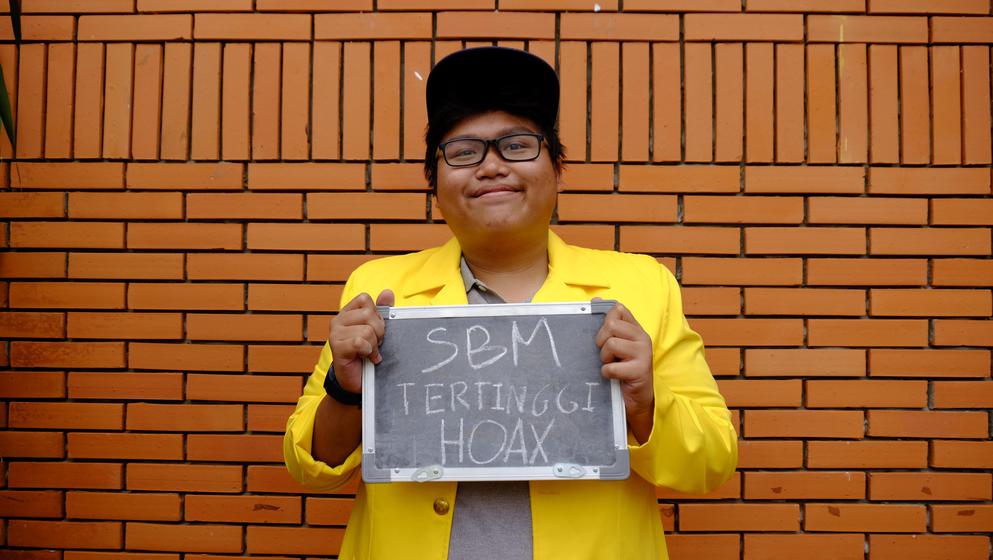 SBM
TERTINGGI
HOAX